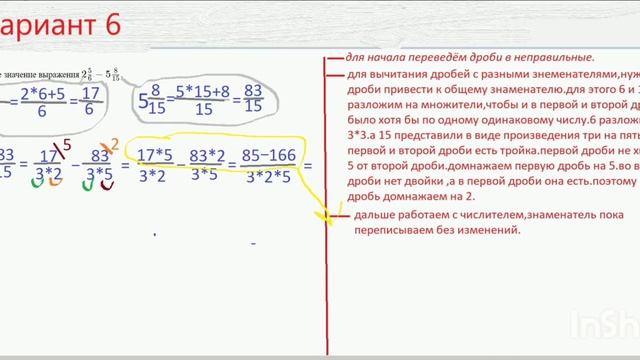 ариант 6
е значение выражения 2 5/6 − 5 8/15.
= 2*6+5/6 = 17/6
5 8/15 = 5*15+8/15 = 83/15
33/15 = 17/3*2 5 − 83/3*5 2 = 17*5/3*2 − 83*2/3*5 = 85−166/3*2*5 =
для начала переведём дроби в неправильные.
для вычитания дробей с разными знеменателями,нуж
дроби привести к общему знаменателю.для этого 6 и 1
разложим на множители,чтобы и в первой и второй др
было хотя бы по одному одинаковому числу.6 разложи
3*3.а 15 представили в виде произведения три на пять
первой и второй дроби есть тройка.первой дроби не х
5 от второй дроби.домнажаем первую дробь на 5.во в
дроби нет двойки ,а в первой дроби она есть.поэтому
дробь домнажаем на 2.
дальше работаем с числителем,знаменатель пока
переписываем без изменений.
InSh